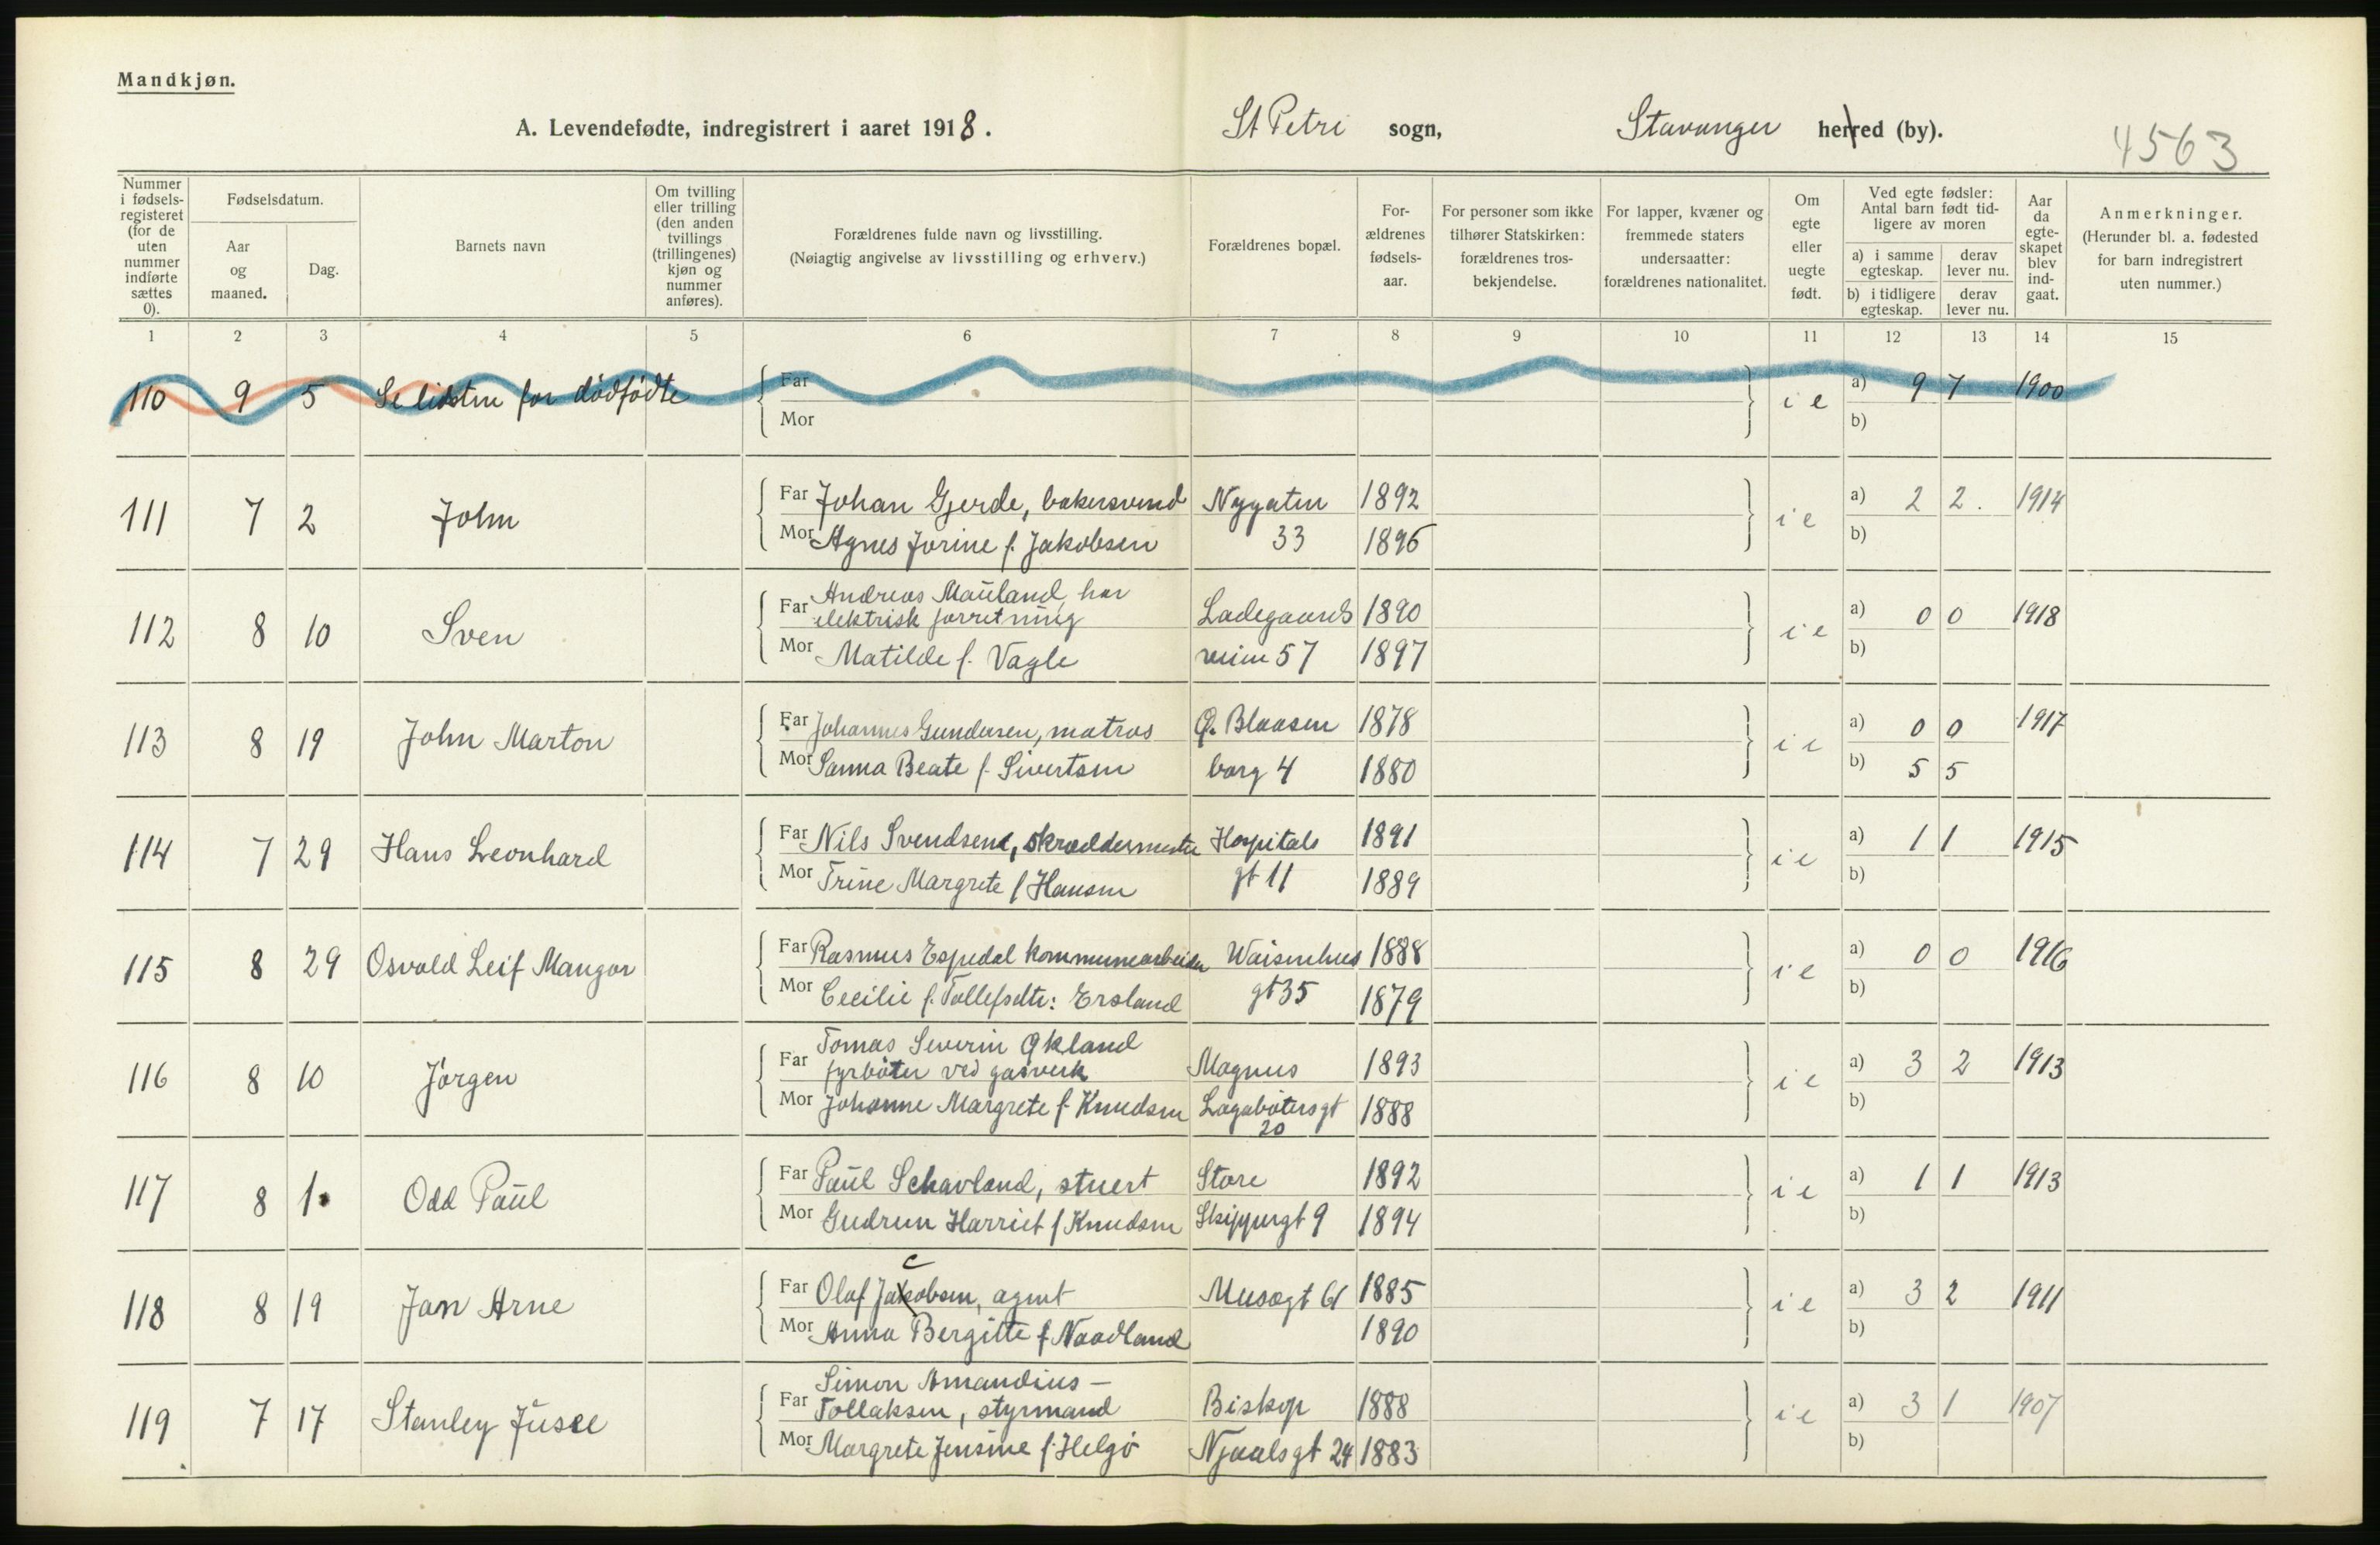 Mandkjøn.
A. Levendefødte, indregistrert i aaret 1918. St Petri sogn, Stavanger herred (by). 4563
Nummer i fødsels-registeret (for de uten nummer indførte sættes 0).
Fødselsdatum.
Aar og maaned.
Dag.
Barnets navn
Om tvilling eller trilling (den anden tvillings (trillingenes) kjøn og nummer anføres).
Forældrenes fulde navn og livsstilling.
(Nøiagtig angivelse av livsstilling og erhverv.)
Forældrenes bopæl.
For-ældrenes fødsels-aar.
For personer som ikke tilhører Statskirken: forældrenes tros-bekjendelse.
For lapper, kvæner og fremmede staters undersaatter: forældrenes nationalitet.
Om egte eller uegte født.
Ved egte fødsler: Antal barn født tid-ligere av moren
a) i samme egteskap. derav lever nu.
b) i tidligere egteskap. derav lever nu.
Aar da egte-skapet blev ind-gaat.
Anmerkninger.
(Herunder bl. a. fødested for barn indregistrert uten nummer.)
1 2 3 4 5 6 7 8 9 10 11 12 13 14 15
110 9 5 Se listen for dödfödte Far i e a) 9 7 1900
Mor b)
111 7 2 John Far Johan Gjerde, bakersvend Nygaten 1892 i e a) 2 2. 1914
Mor Agnes Jorine f. Jakobsen 33 1896 b)
112 8 10 Sven Far Andreas Mauland, har
elektrisk forretning Ladegaards 1890 i e a) 0 0 1918
Mor Matilde f. Vagle veien 57 1897 b)
113 8 19 John Marton Far Johannes Gundersen, matros Ø. Blaasen 1878 i e a) 0 0 1917
Mor Sanna Beate f. Sivertsen borg 4 1880 b) 5 5
114 7 29 Hans Leonhard Far Nils Svendsen, skræddermester Hospitals 1891 i e a) 1 1 1915
Mor Trine Margrete f Hansen gt 11 1889 b)
115 8 29 Osvald Leif Mangor Far Rasmus Espedal kommunearbeider Waisenhus 1888 i e a) 0 0 1916
Mor Cecilie f. Tollefsdtr: Ersland gt 35 1879 b)
116 8 10 Jörgen Far Tomas Severin Økland
fyrböter ved gasverk Magnus 1893 i e a) 3 2 1913
Mor Johanne Margrete f. Knudsen Lagabötersgt 1888 b)
20
117 8 1. Odd Paul Far Paul Schavland, stuert Store 1892 i e a) 1 1 1913
Mor Gudrun Harriet f Knudsen Skippergt 9 1894 b)
118 8 19 Jan Arne Far Olaf Jacobsen, agent Musegt 61 1885 i e a) 3 2 1911
Mor Anna Bergitte f Naadland 1890 b)
119 7 17 Stanley Far Simon Amandius -
Tollaksen, styrmand Biskop 1888 i e a) 3 1 1907
Mor Margrete Jensine f. Helgö Njaalsgt 24 1883 b)